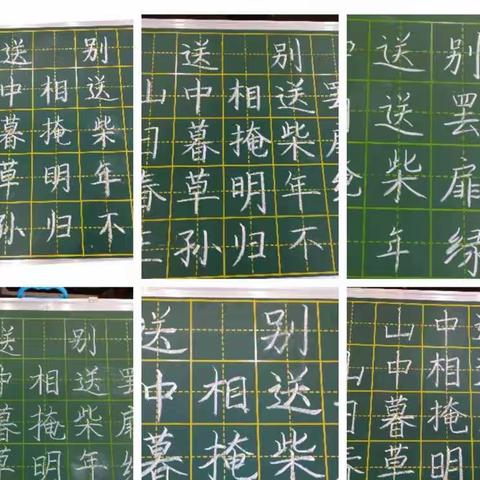 送 别
中 相 送
暮 掩 柴
草 明 年
孙 归 不
送 别
山 中 相 送 罢
日 暮 掩 柴
春 草 明 年
王 孙 归 不
送 别
送 罢
柴 扉
年 绿
送 别
中 相 送 罢
暮 掩 柴 扉
草 明 年
送 别
中 相 送
暮 掩 柴
山 中
山 中 相
暮 掩
草 明